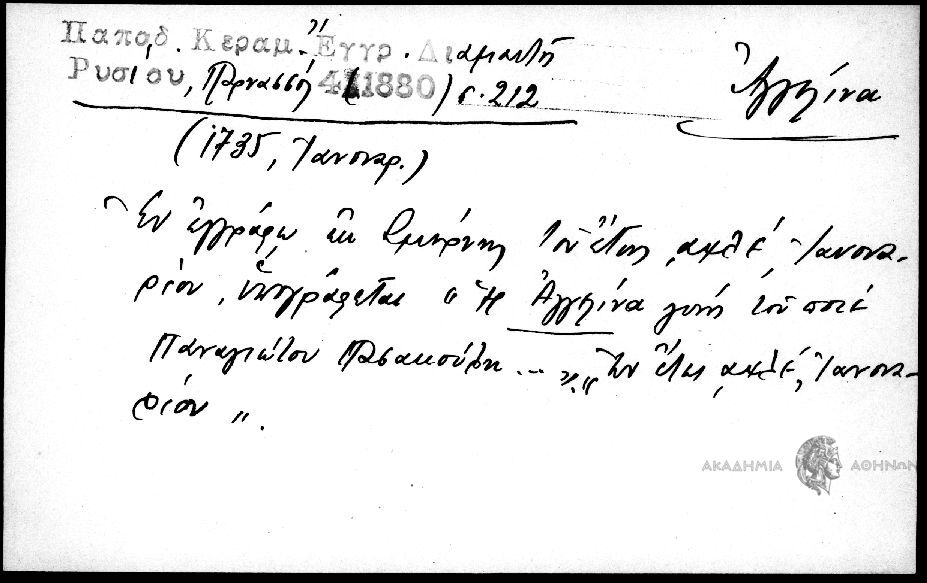 Παπαδ. Κεραμ. Ἔγγρ. Διαμαντῆ
Ρυσίου, Παρνασσός 4 (1880) σ. 212
Ἀγγελίνα
(1735, Ἰανουαρ.)
Ἐν ἐγγράφῳ ἐκ Σμύρνης τοῦ ἔτους ͵αψλέ, Ἰανουα-
ρίου, ὑπογράφεται "Ἡ Ἀγγελίνα γυνή τοῦ ποτέ
Παναγιώτου ... ". "Ἐν ἔτει ͵αψλέ, Ἰανουα-
ρίου".
ΑΚΑΔΗΜΙΑ ΑΘΗΝΩΝ